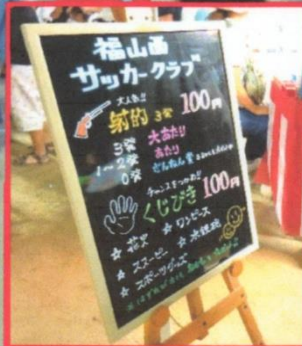 福山西
サッカークラブ
大人気!!
射的 3発 100円
3発 大当たり
1〜2発 当たり
0発 ざんねん賞
チャンスをつかめ!!
くじびき 100円
☆花火 ☆ワンピース
☆スヌーピー ☆水鉄砲
☆スポーツグッズ